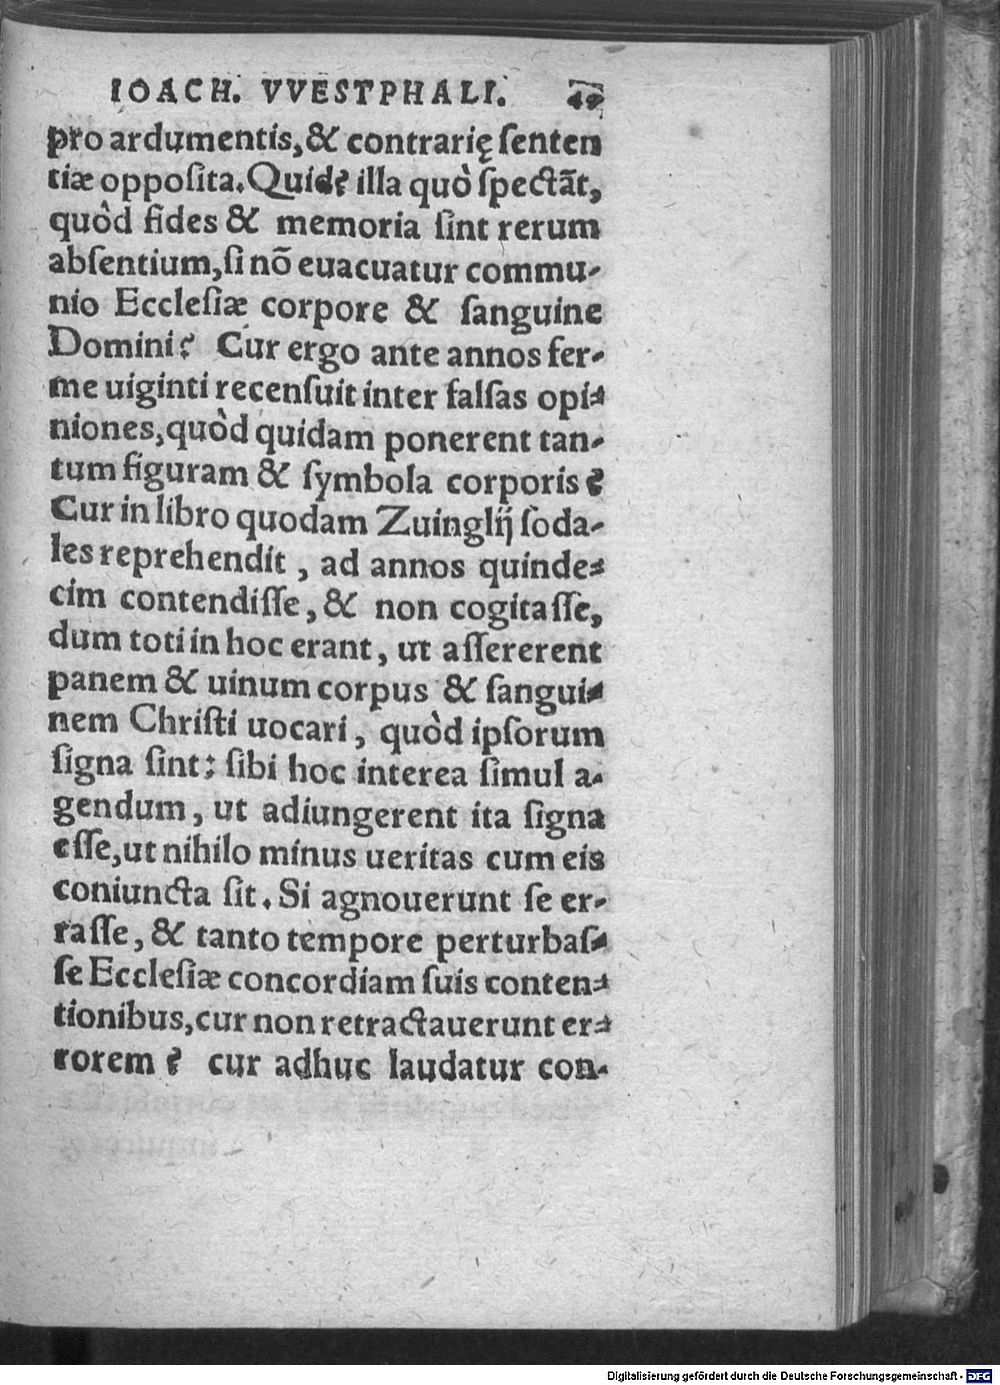 IOACH. VVESTPHALI.
pro ardumentis, & contrarię ſenten
tiæ oppoſita. Quid? illa quò ſpectãt,
quòd fides & memoria ſint rerum
abſentium, ſi nõ euacuatur commu-
nio Eccleſiæ corpore & ſanguine
Domini? Cur ergo ante annos fer-
me uiginti recenſuit inter falſas opi-
niones, quòd quidam ponerent tan-
tum figuram & ſymbola corporis?
Cur in libro quodam Zuinglij ſoda-
les reprehendit, ad annos quinde-
cim contendiſſe, & non cogitaſſe,
dum toti in hoc erant, ut aſſererent
panem & uinum corpus & ſangui-
nem Chriſti uocari, quòd ipſorum
ſigna ſint: ſibi hoc interea ſimul a-
gendum, ut adiungerent ita ſigna
eſſe, ut nihilo minus ueritas cum eis
coniuncta ſit. Si agnouerunt ſe er-
raſſe, & tanto tempore perturbaſ-
ſe Eccleſiæ concordiam ſuis conten-
tionibus, cur non retractauerunt er-
rorem? cur adhuc laudatur con-
Digitalisierung gefördert durch die Deutsche Forschungsgemeinschaft - DFG